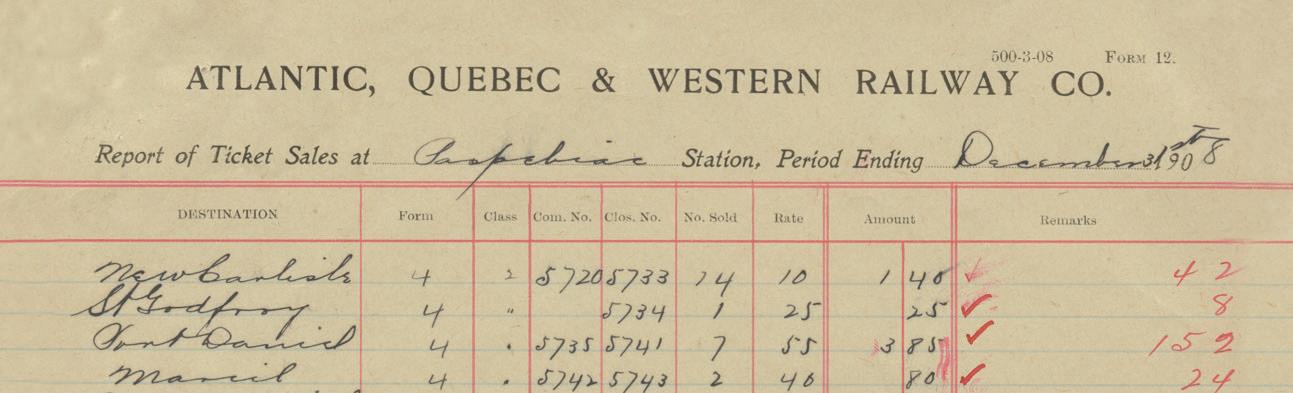 500-3-08 FORM 12.
ATLANTIC, QUEBEC & WESTERN RAILWAY CO.
Report of Ticket Sales at Paspebiac Station, Period Ending December 31st 1908
DESTINATION Form Class Com. No. Clos. No. No. Sold Rate Amount Remarks
New Carlisle 4 2 5720 5733 14 10 1 40 ✓ 42
St Godfroy 4 " 5734 1 25 25 ✓ 8
Port Daniel 4 . 5735 5741 7 55 3 85 ✓ 152
Marcil 4 . 5742 5743 2 40 80 ✓ 24